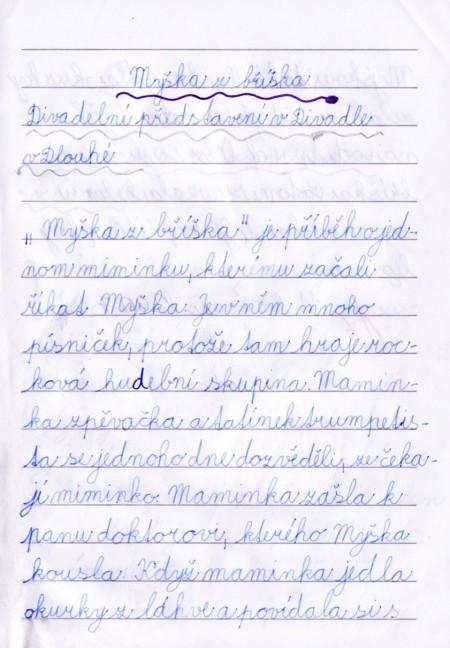 Myška z bříška
Divadelní představení v Divadle
v Dlouhé
„Myška z bříška" je příběh o jed-
nom miminku, kterému začali
říkat Myška. Je v něm mnoho
písniček, protože tam hraje roc-
ková hudební skupina. Mamin-
ka zpěvačka a tatínek trumpetis-
ta se jednoho dne dozvěděli, ze čeka-
jí miminko. Maminka zašla k
panu doktorovi, kterého Myška
kousla. Když maminka jedla
okurky z láhve a povídala si s